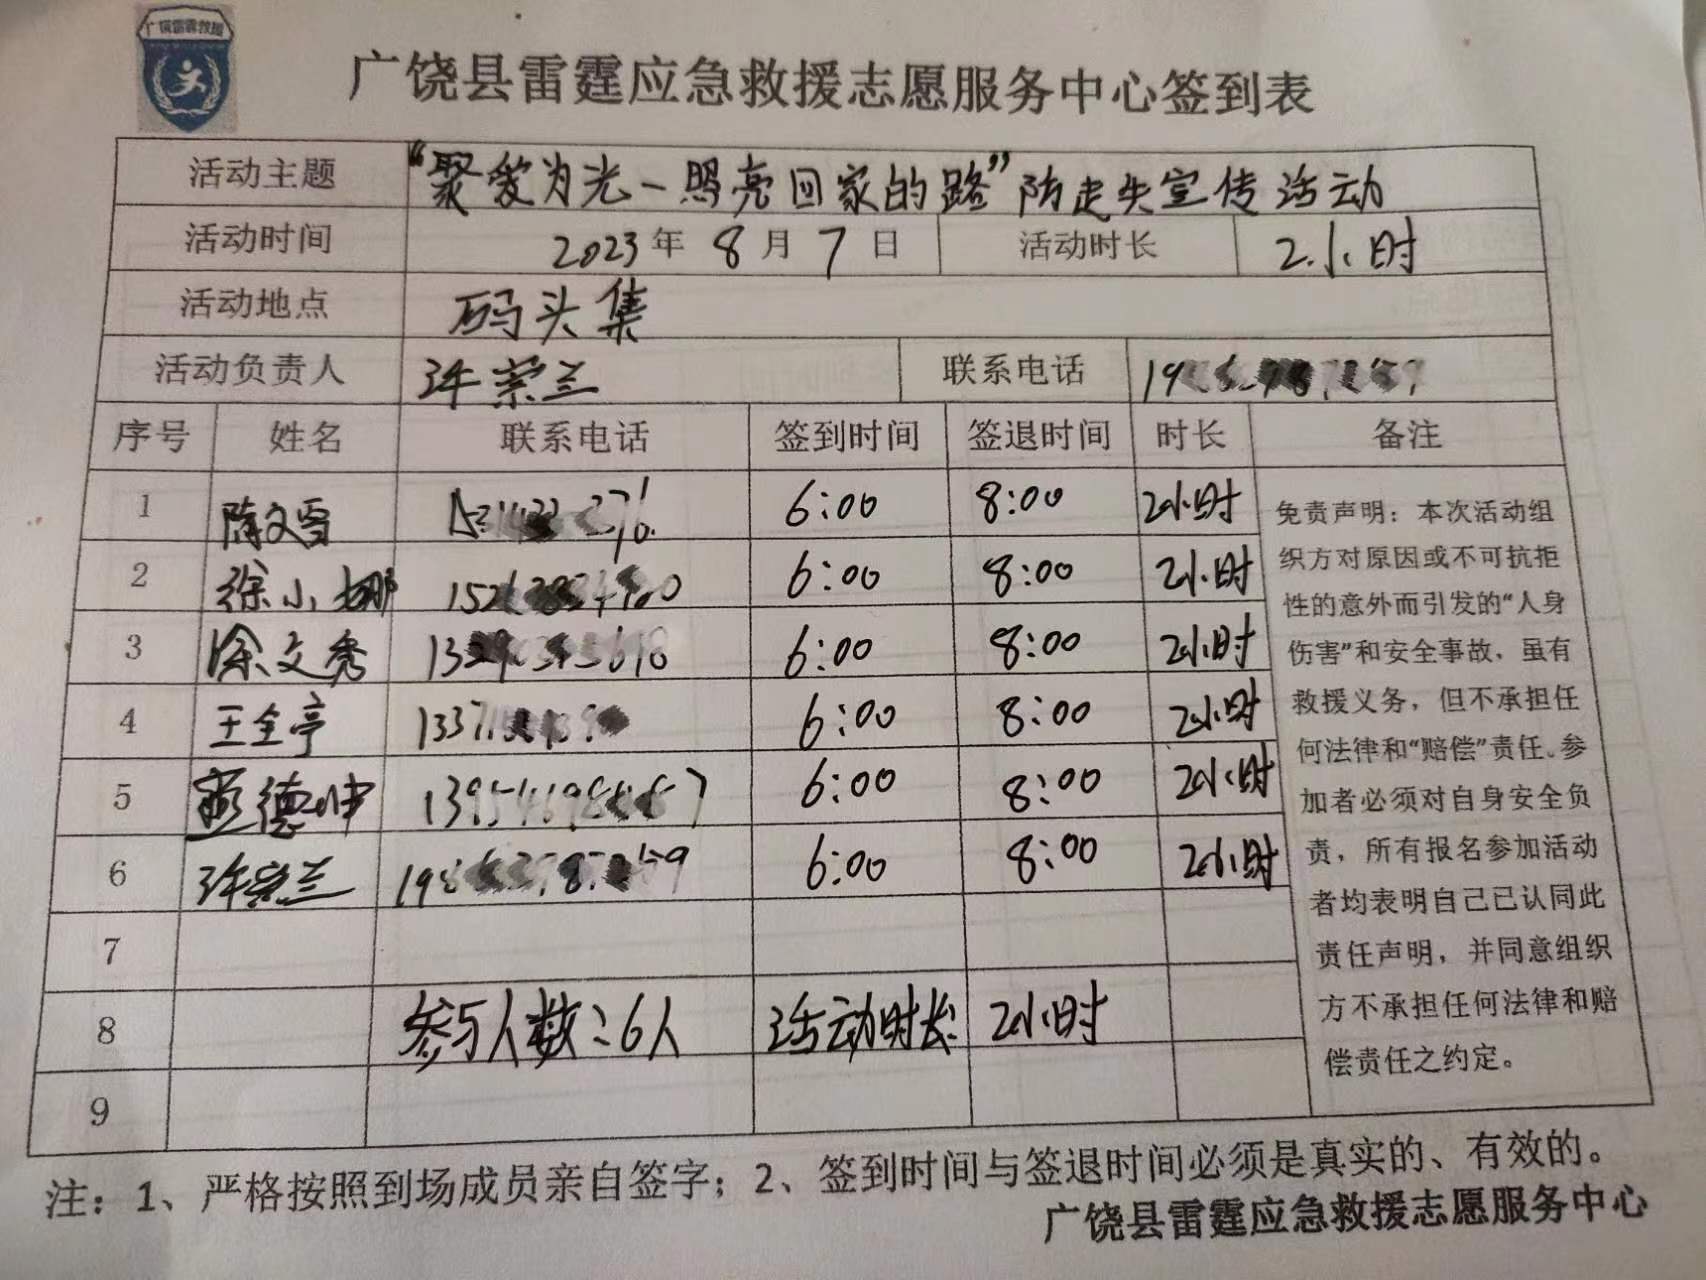 广饶雷霆救援
广饶县雷霆应急救援志愿服务中心签到表
活动主题 “聚爱为光一照亮回家的路”防走失宣传活动
活动时间 2023年 8月 7日 活动时长 2小时
活动地点 码头集
活动负责人 许崇兰 联系电话
序号 姓名 联系电话 签到时间 签退时间 时长 备注
1 陈文雪 6:00 8:00 2小时
2 徐小娜 6:00 8:00 2小时
3 徐文秀 6:00 8:00 2小时
4 王全亭 6:00 8:00 2小时
5 6:00 8:00 2小时
6 许崇兰 6:00 8:00 2小时
7
8 参与人数:6人 活动时长: 2小时
9
免责声明：本次活动组
织方对原因或不可抗拒
性的意外而引发的“人身
伤害”和安全事故，虽有
救援义务，但不承担任
何法律和“赔偿”责任。参
加者必须对自身安全负
责，所有报名参加活动
者均表明自己已认同此
责任声明，并同意组织
方不承担任何法律和赔
偿责任之约定。
注：1、严格按照到场成员亲自签字；2、签到时间与签退时间必须是真实的、有效的。
广饶县雷霆应急救援志愿服务中心